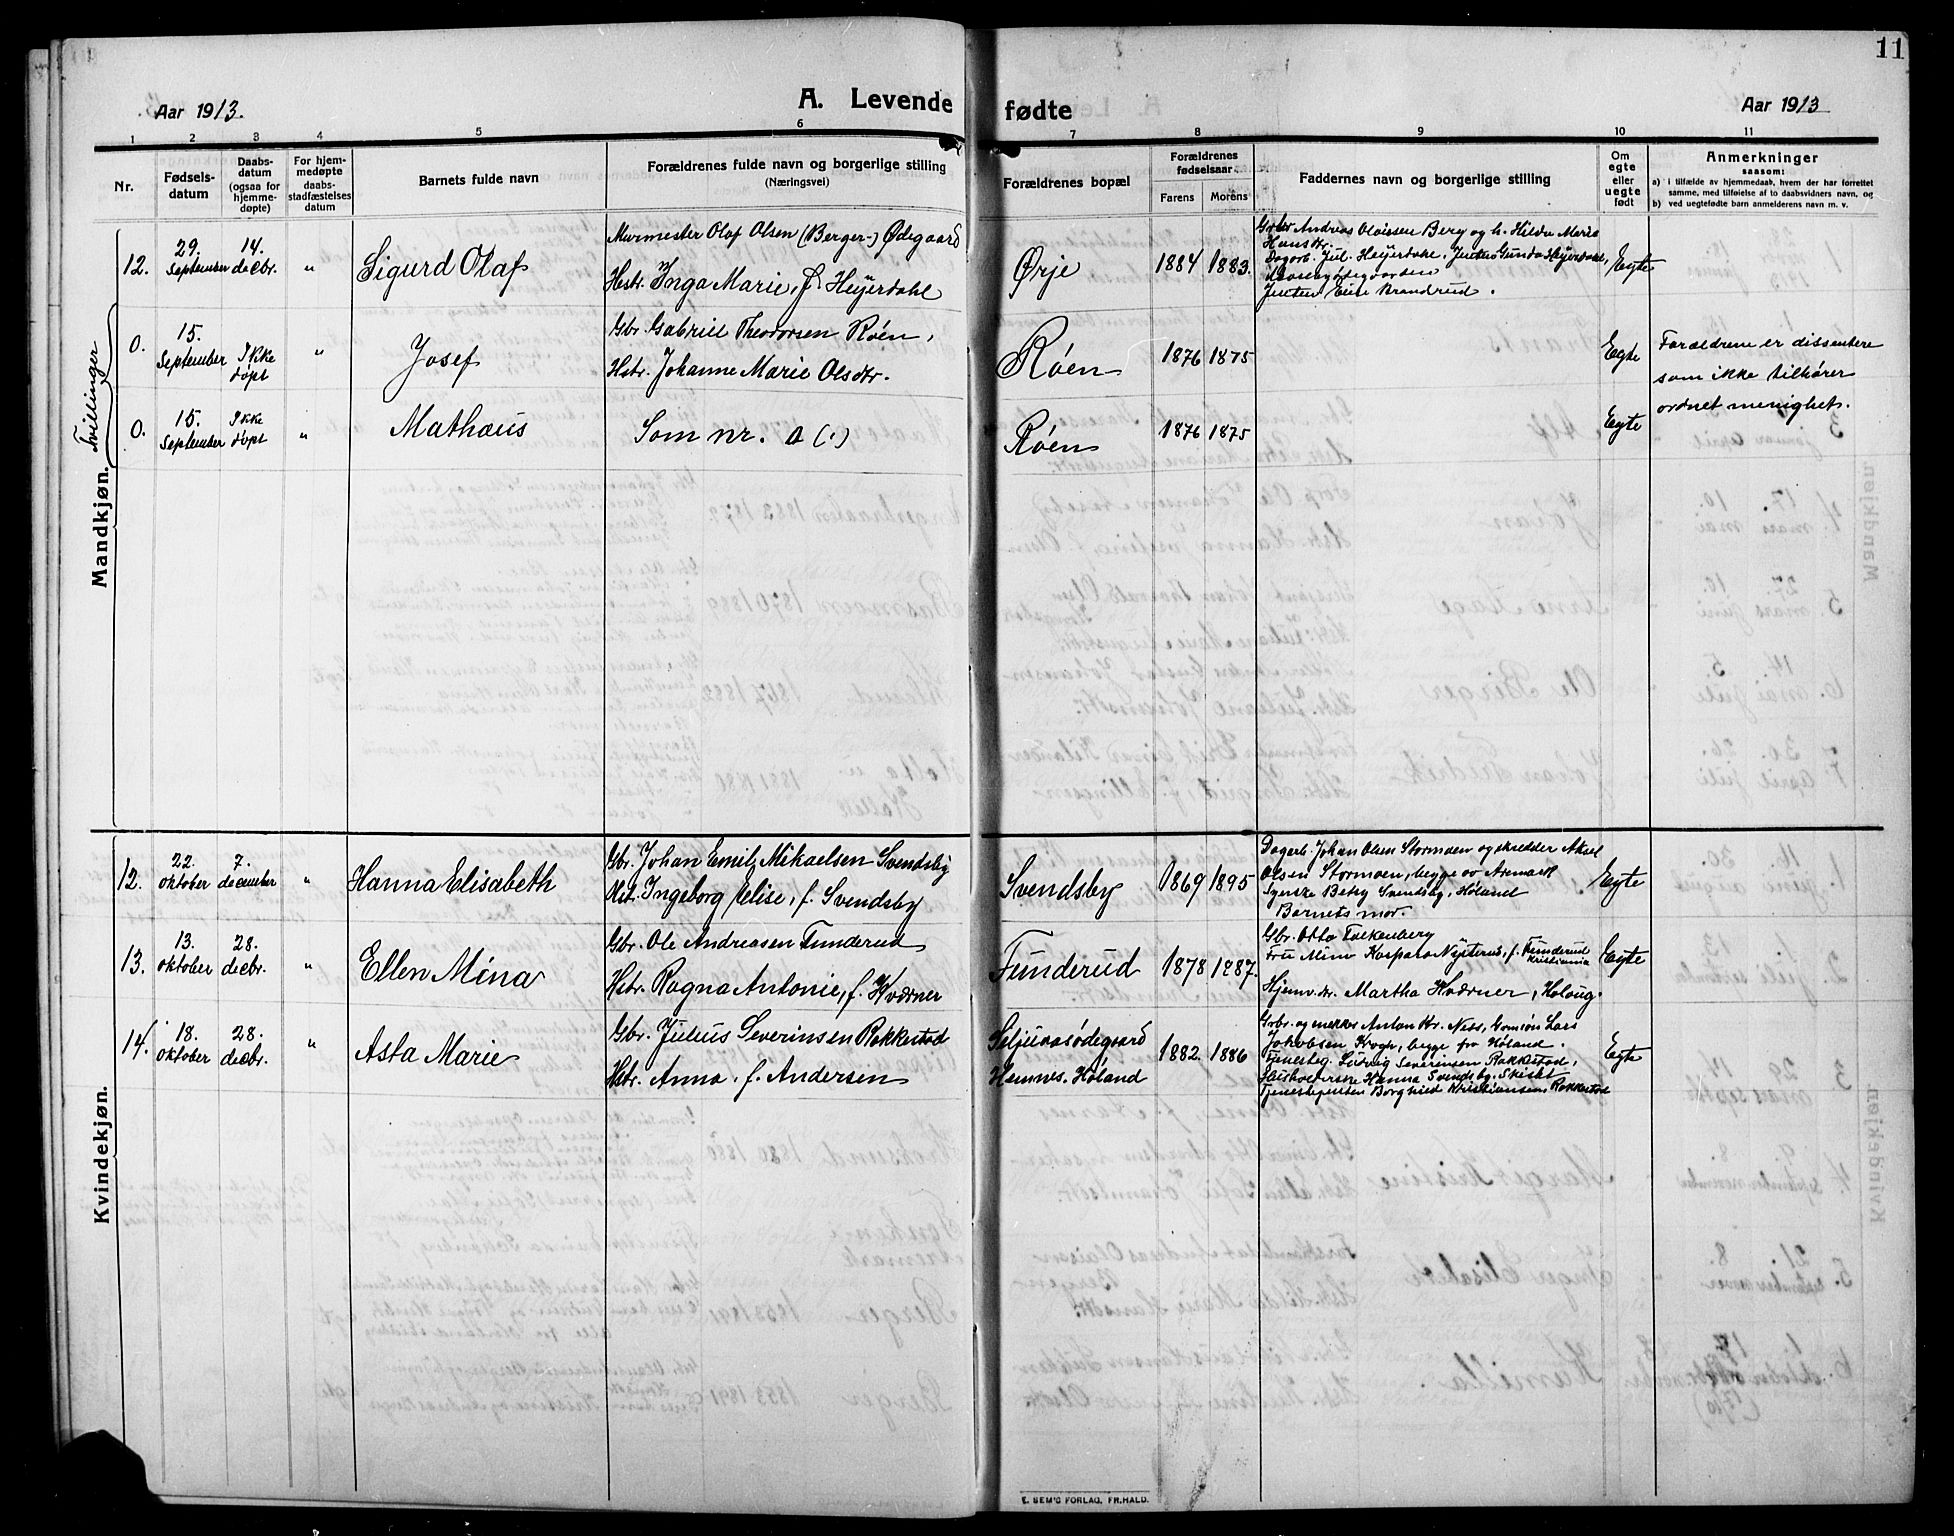 11
Aar 1913.
A. Levende
fødte
Aar 1913
1
2
3
4
5
6
7
8
9
10
11
Nr.
Fødsels-
datum
Daabs-
datum
(ogsaa for
hjemme-
døpte)
For hjem-
medøpte
daabs-
stadfæstelses
datum
Barnets fulde navn
Forældrenes fulde navn og borgerlige stilling
(Næringsvei)
Forældrenes bopæl
Forældrenes
fødselsaar
Farens
Morens
Faddernes navn og borgerlige stilling
Om
egte
eller
uegte
født
Anmerkninger
saasom:
a) i tilfælde av hjemmedaab, hvem der har forrettet
samme, med tilføielse af to daabsvidners navn, og
b) ved uegtefødte barn anmelderens navn m. v.
Mandkjøn.
Tvillinger
12.
29.
September
14.
decbr.
"
Sigurd Olaf
Murmester Olaf Olsen (Berger-) Ødegaard
Hstr. Inga Marie, f. Heyerdahl
Ørje
1884
1883.
Grbr Andreas Olaissen Berg og h. Hilda Marie
Hansdr.
Dagarb. Jul. Heyerdahl, Jenten Gunda Heyerdahl,
Jenten Elise Brandrud.
Egte
0.
15.
September
Ikke
døpt
"
Josef
Gbr. Gabriel Theodorsen Røen,
Hstr. Johanne Marie Olsdtr.
Røen
1876
1875
Egte
Forældrene er dissentere
som ikke tilhører
ordnet menighet.
0.
15.
September
Ikke
døpt
"
Mathæus
Som nr. 0 (.)
Røen
1876
1875
Egte
Kvindekjøn.
12.
22.
oktober
7.
december
"
Hanna Elisabeth
Gbr. Johan Emil Mikaelsen Svendsby
Hst. Ingeborg Elise, f. Svendsby
Svendsby
1869
1895
Dagarb. Johan Olsen Stormoen og skredder Aksel
Olsen Stormoen, begge av Aremark
Syerske Betsy Svendsby, Høland
Barnets mor.
Egte
13.
13.
oktober
28.
decbr.
"
Ellen Mina
Gbr. Ole Andreasen Funderud
Hstr. Ragna Antonie, f. Kværner
Funderud
1878
1887.
Gbr. Otto Falkenberg
Fru Mina Kaspara Nyterud, f. Funderud
Kristiania
Hjemv. dr. Martha Kværner, Kolbug.
Egte
14.
18.
oktober
28.
decbr.
"
Asta Marie
Gbr. Julius Severinsen Rakkestad
Hstr. Anna, f. Andersen
Seljeaasødegaard
Hemnes, Høland
1882
1886
Grbr. og enkem Anton Kr. Ness, Lars
Jakobsen Krogh, begge fra Høland.
Tjenesteg. Ludvig Severinsen Rakkestad,
Husholderske Hanna Svendsby, Skiskt
Tjenestejenten Borghild Kristiansen Rakkestad
Egte
E. SEM'S FORLAG, FR.HALD.